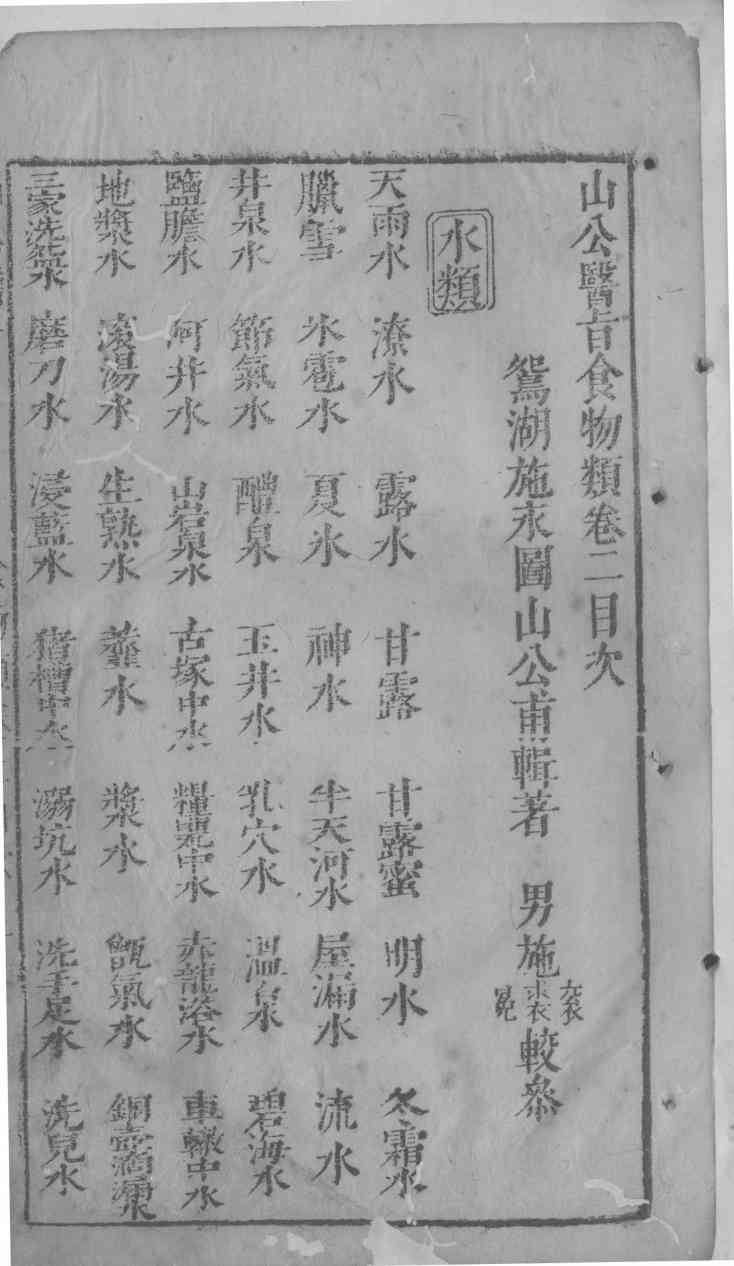 山公醫旨食物類卷二目次
鴛湖施永圖山公甫輯著 男施 較叅
水類
天雨水 潦水 露水 甘露 甘露蜜 明水 冬霜水
臘雪 氷雹水 夏氷 神水 半天河水 屋漏水 流水
井泉水 節氣水 醴泉 玉井水 乳穴水 溫泉 碧海水
鹽膽水 阿井水 山岩泉水 古塚中水 糧甖中水 赤龍浴水 車轍中水
地漿水 滾湯水 生熟水 虀水 漿水 甑氣水 銅壺滴漏水
三家洗盌水 磨刀水 浸藍水 猪槽中水 溺坑水 洗手足水 洗兒水